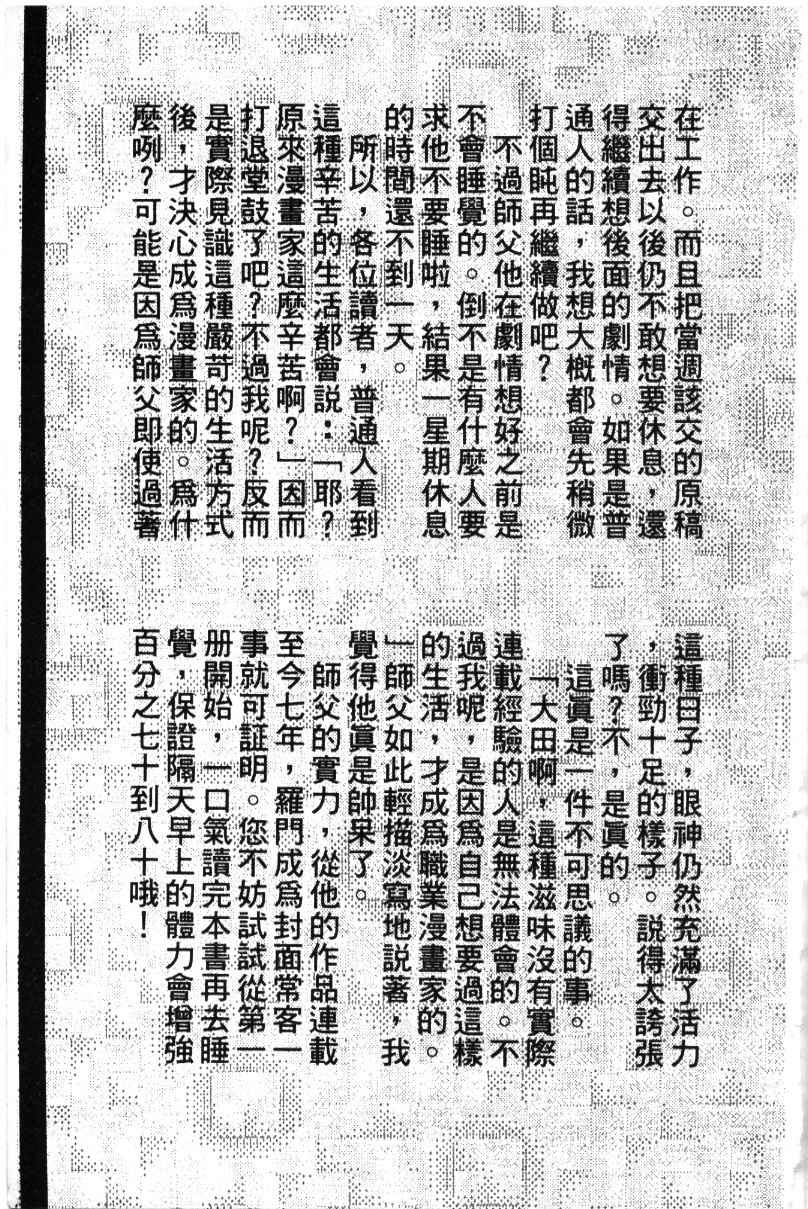 在工作。而且把當週該交的原稿
交出去以後仍不敢想要休息，還
得繼續想後面的劇情。如果是普
通人的話，我想大概都會先稍微
打個盹再繼續做吧？
不過師父他在劇情想好之前是
不會睡覺的。倒不是有什麼人要
求他不要睡啦，結果一星期休息
的時間還不到一天。
所以，各位讀者，普通人看到
這種辛苦的生活都會說：「耶？
原來漫畫家這麼辛苦啊？」因而
打退堂鼓了吧？不過我呢？反而
是實際見識這種嚴苛的生活方式
後，才決心成爲漫畫家的。爲什
麼咧？可能是因爲師父即使過著
這種日子，眼神仍然充滿了活力
，衝勁十足的樣子。說得太誇張
了嗎？不，是眞的。
這眞是一件不可思議的事。
「大田啊，這種滋味沒有實際
連載經驗的人是無法體會的。不
過我呢，是因爲自己想要過這樣
的生活，才成爲職業漫畫家的。
」師父如此輕描淡寫地說著，我
覺得他眞是帥呆了。
師父的實力，從他的作品連載
至今七年，羅門成爲封面常客一
事就可証明。您不妨試試從第一
册開始，一口氣讀完本書再去睡
覺，保證隔天早上的體力會增強
百分之七十到八十哦！